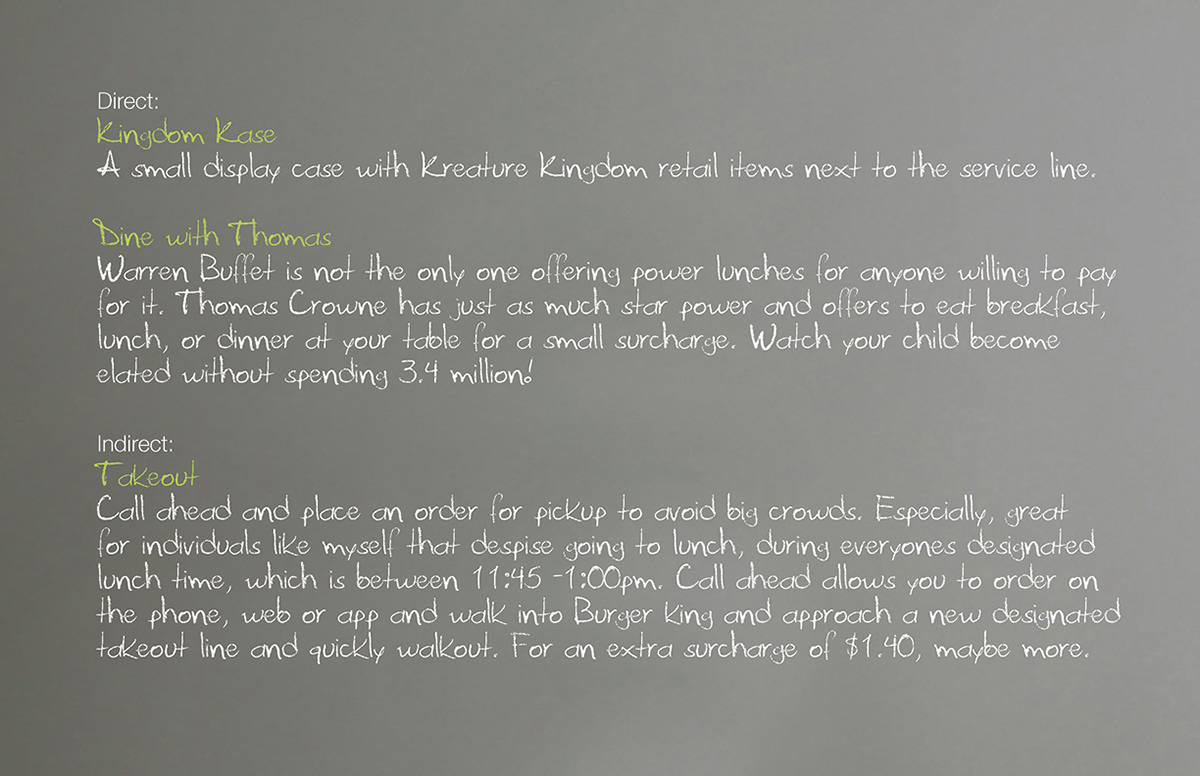 Direct:
Kingdom Kase
A small display case with Kreature Kingdom retail items next to the service line.
Dine with Thomas
Warren Buffet is not the only one offering power lunches for anyone willing to pay
for it. Thomas Crowne has just as much star power and offers to eat breakfast,
lunch, or dinner at your table for a small surcharge. Watch your child become
elated without spending 3.4 million!
Indirect:
Takeout
Call ahead and place an order for pickup to avoid big crowds. Especially, great
for individuals like myself that despise going to lunch, during everyones designated
lunch time, which is between 11:45 -1:00pm. Call ahead allows you to order on
the phone, web or app and walk into Burger King and approach a new designated
takeout line and quickly walkout. For an extra surcharge of $1.40, maybe more.